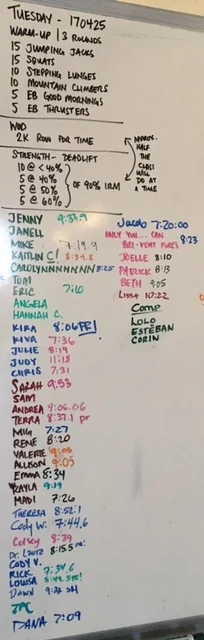 TUESDAY - 170425
WARM-UP | 3 ROUNDS
15 JUMPING JACKS
15 SQUATS
10 STEPPING LUNGES
10 MOUNTAIN CLIMBERS
5 EB GOOD MORNINGS
5 EB THRUSTERS
WOD
2K ROW FOR TIME
APPROX. HALF THE CLASS WILL DO AT A TIME
STRENGTH - DEADLIFT
10 @ <40%
5 @ 40%
5 @ 50%
5 @ 60%
OF 90% 1RM
JENNY 9:37.9
JANELL
MIKE 7:19.9
KAITLIN C! 8:34.8
CAROLYNNNNNNNN 8:25
TOM
ERIC 7:10
ANGELA
HANNAH C.
KIRA 8:06 PR!
KIYA 7:36
JULIE 8:19
JUDY 11:13
CHRIS 7:31
SARAH 9:53
SAM
ANDREA 9:06.06
TERRA 8:37.1 pr
MIG 7:27
RENE 8:20
VALERIE 9:05
ALLISON 9:05
Emma 8:34
KAYLA 9:19
MADI 7:26
THERESA 8:52.1
Cody W. 7:44.6
Colsey 8:39
Dr. Lautz 8:15.5 PR!
CODY V.
RICK 7:34.6
LOUISA
DAWN 9:22
7PC
DANA 7:09
Jacob 7:20.00
ONLY YOU... CAN
BRI-VENT FIRES 8:23
JOELLE 8:10
PATRICK 8:13
BETH 9:05
LISSA 10:22
Comp
LOLO
ESTEBAN
CORIN